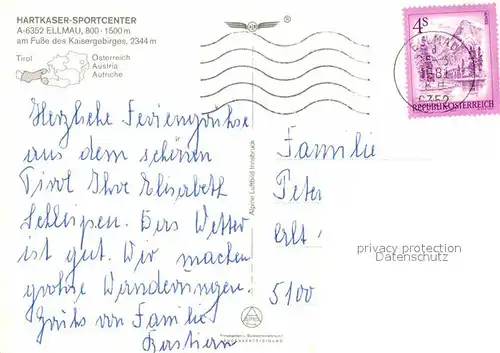 HARTKASER-SPORTCENTER
A-6352 ELLMAU, 800 - 1500 m
am Fuße des Kaisergebirges, 2344 m
Tirol
Österreich
Austria
Autriche
®
4S
REPUBLIK ÖSTERREICH
Herzliche Feriengrühse
aus dem schönen
Tirol Ihre Elisabeth
Schleipen. Das Wetter
ist gut. Wir machen
grohse Wanderungen.
Gruhs von Familie
Bastian
Alpine Luftbild Innsbruck
Familie
Peter
5100
privacy protection
Datenschutz